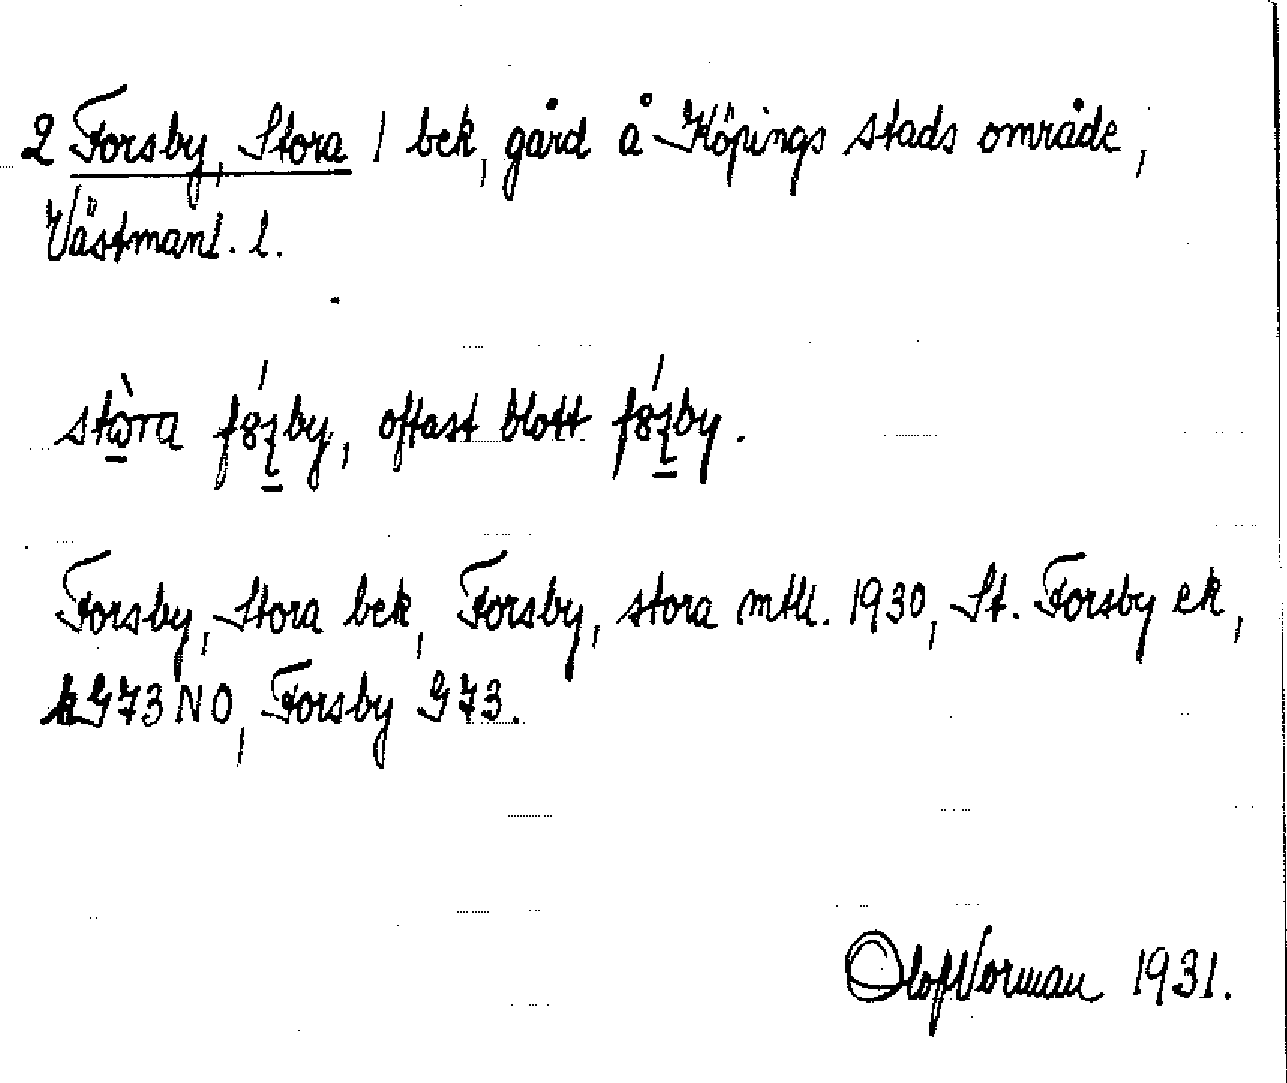 2 Forsby, Stora / bek, gård å Köpings stads område,
Västmanl. l.
stò̱ra f8ʂ̱́by, oftast blott f8ʂ̱́by.
Forsby, Stora bek, Forsby, stora mtll. 1930, St. Forsby ek,
G73NO, Forsby G73.
Olof Norman 1931.